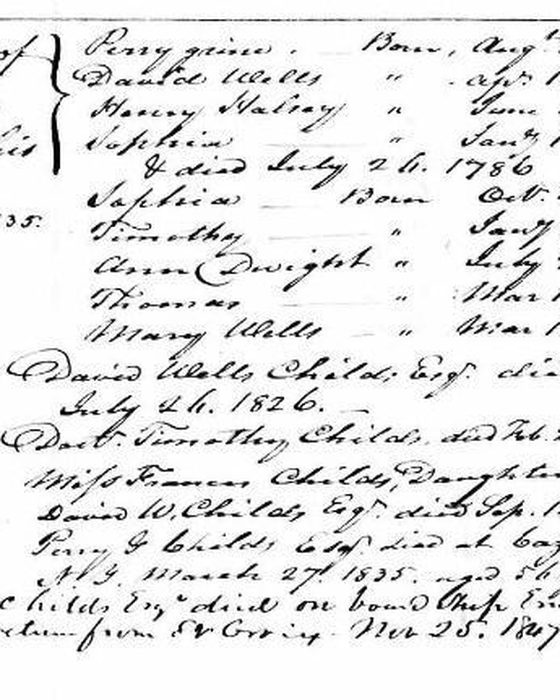 of Perry grine. Born, Aug.t
David Wells " apr. 1
Henry Halsey " June
his Sophia " Jan.y 1
& died July 26. 1786
Sophia Born Oct.
35. Timothy " Jan.y
Ann Dwight " July
Thomas " Mar
Mary Wells " Mar 1
David Wells Childs Esq.r die
July 26. 1826.
Doct.r Timothy Childs, died Feb.
Miss Frances Childs, Daughter
David W. Childs Esq.r died Sep. 1
Perry G Childs Esq.r died at Caz
N.Y. March 27. 1835. aged 56
Childs Esq.r died on board Ship
return from Nov 25. 1847